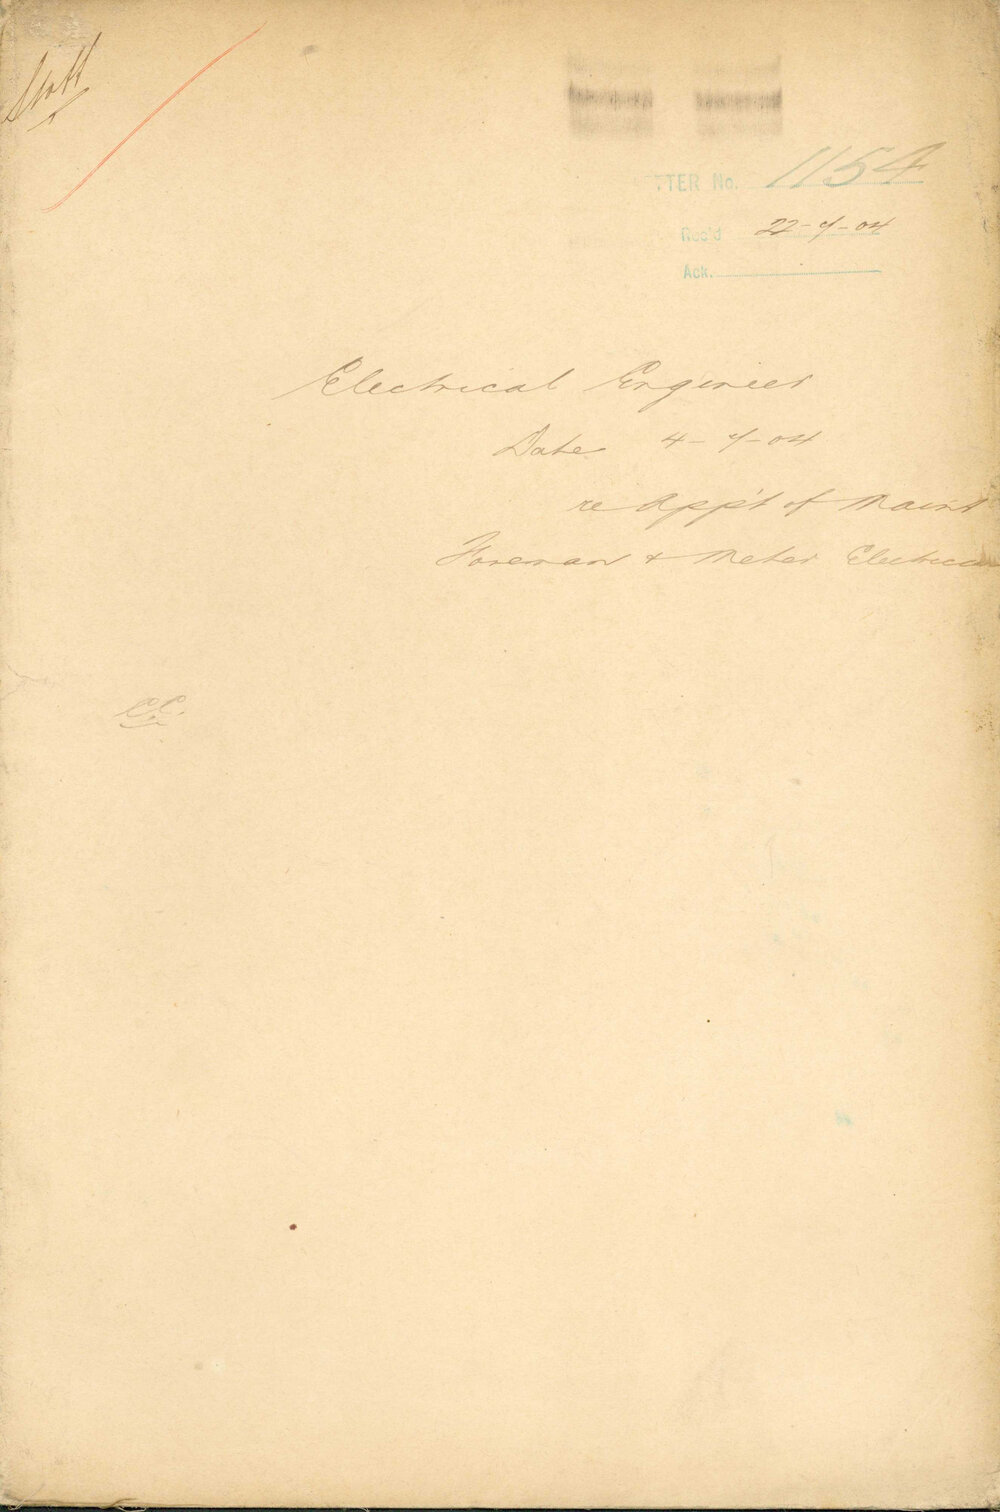 Staff
TTER No. 1154
Rec'd 22-7-04
Ack.
Electrical Engineer
Date 4-7-04
re App't of Maint
Foreman & Meter Electrician
C.C.